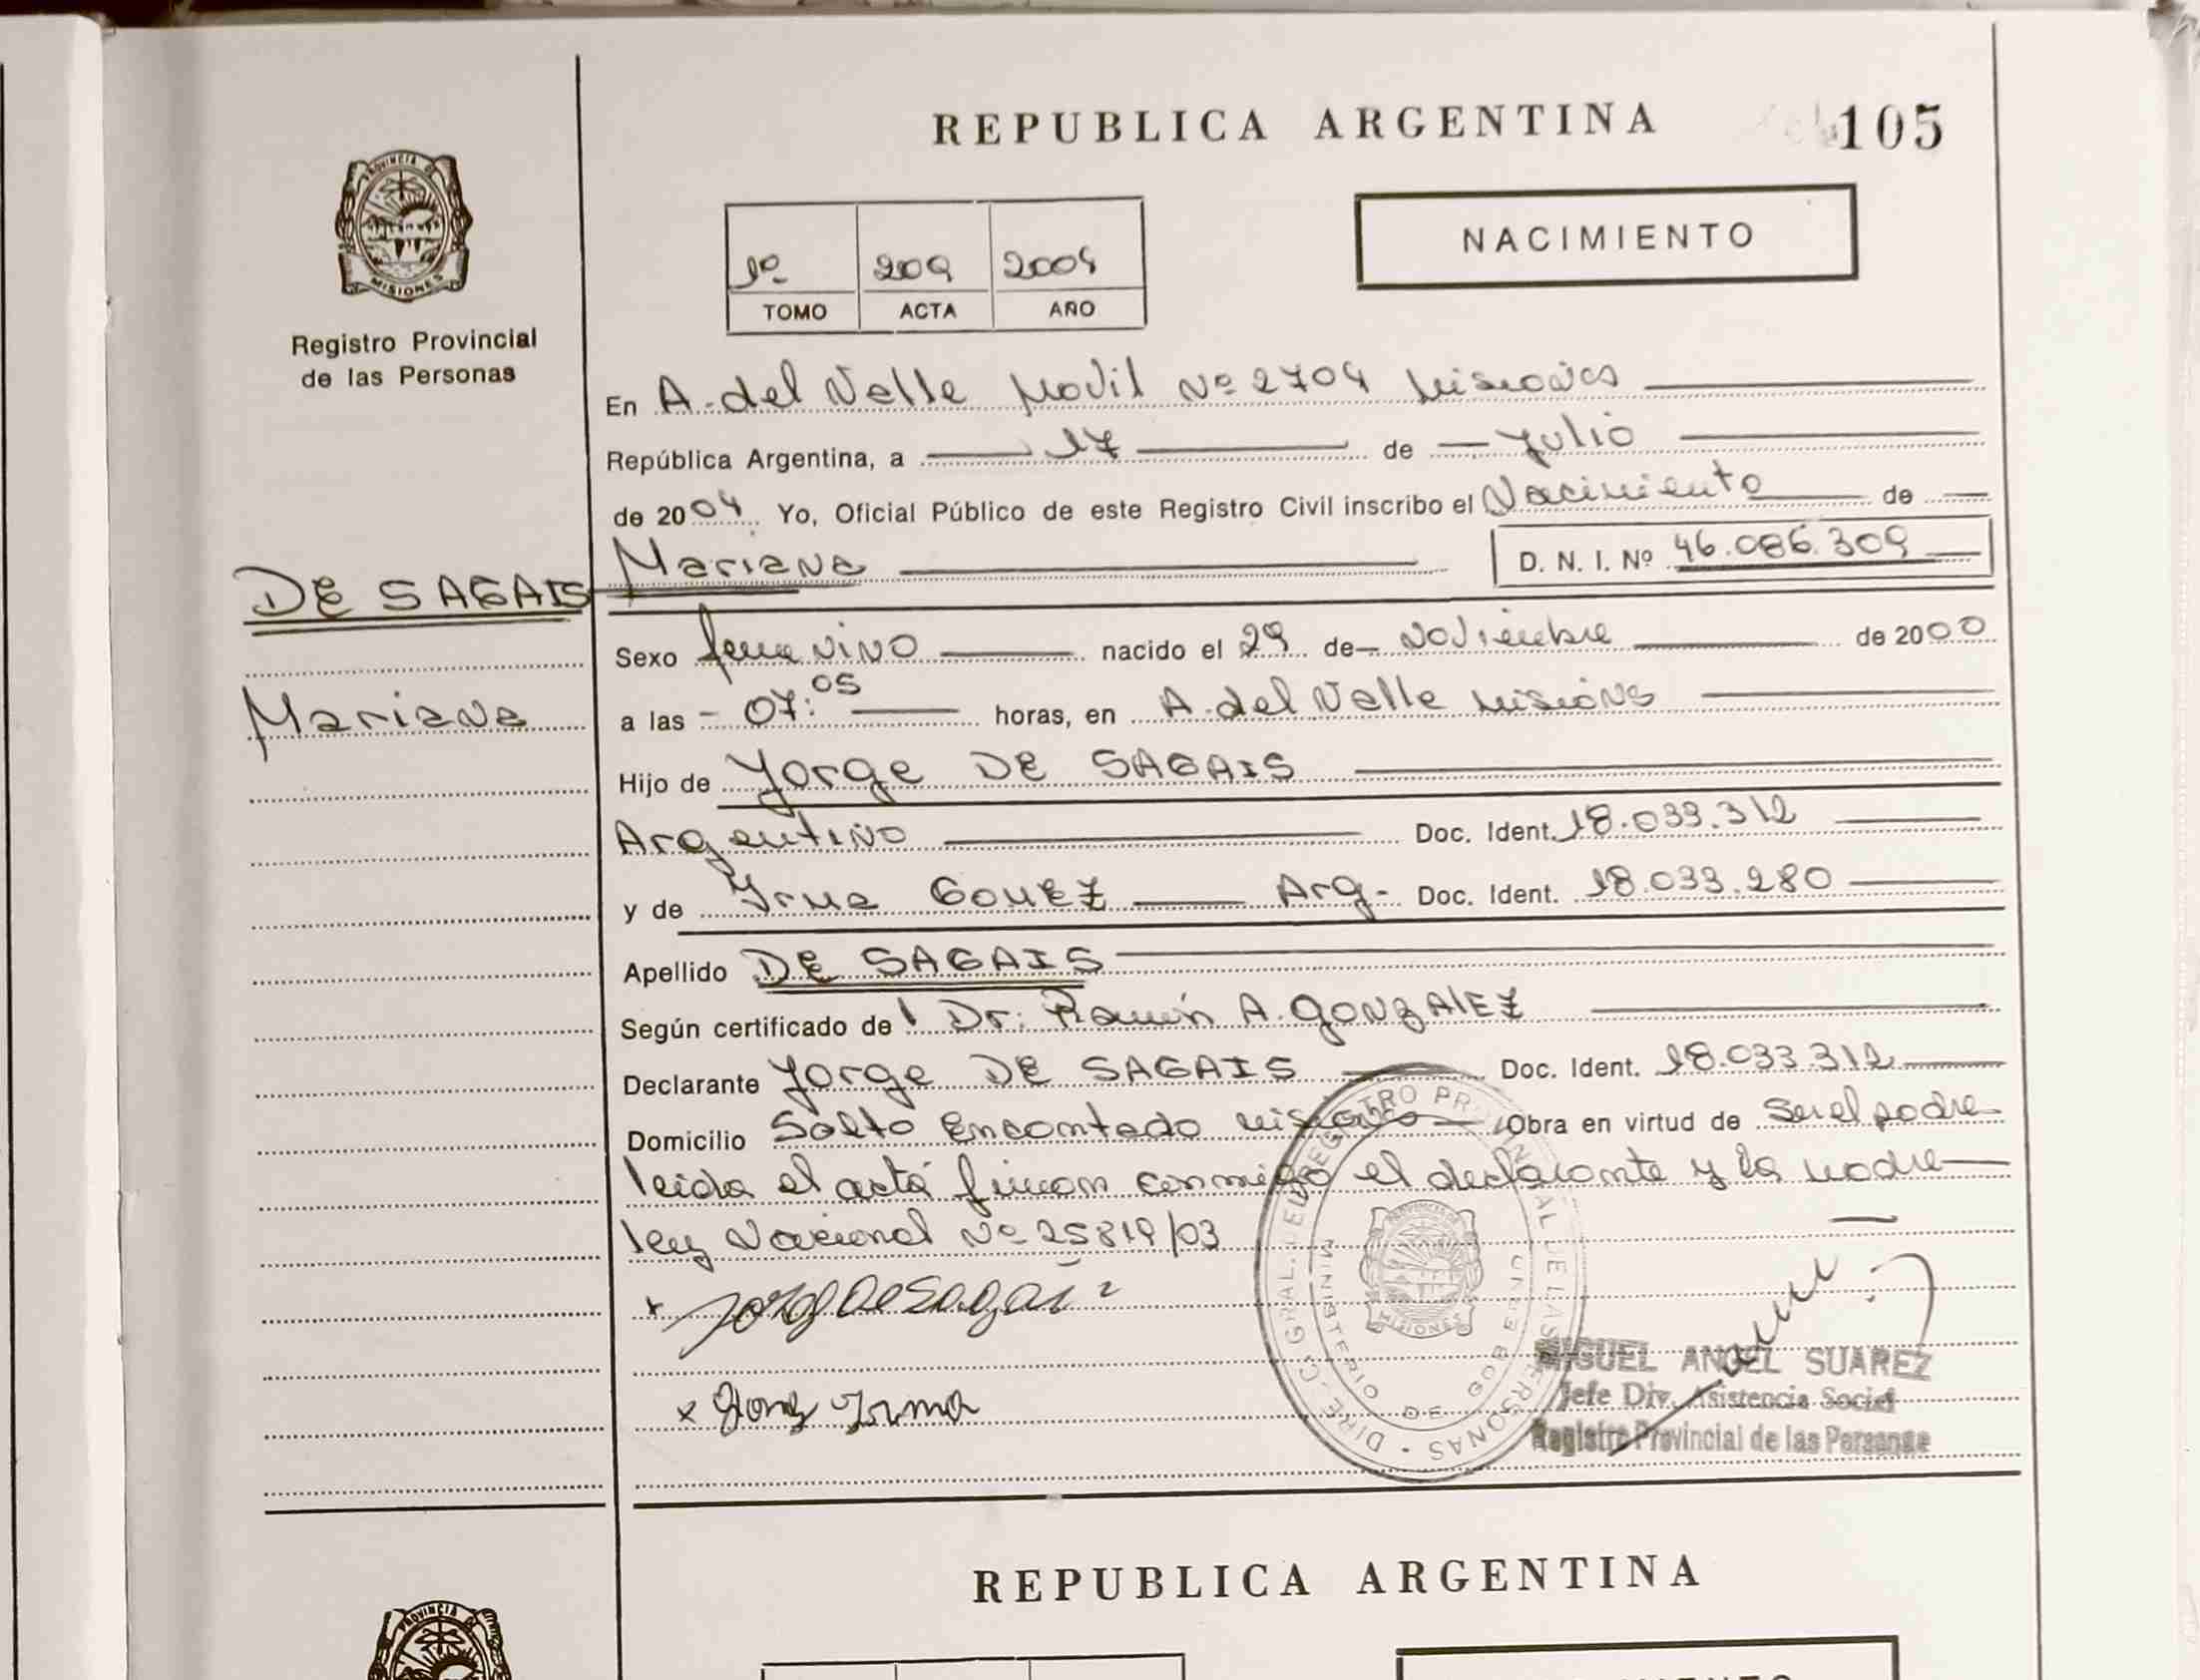 REPUBLICA ARGENTINA
105
PROVINCIA DE
MISIONES
Registro Provincial
de las Personas
1º 209 2004
TOMO ACTA AÑO
NACIMIENTO
En A. del Valle Movil Nº 2704 Misiones
República Argentina, a 17 de Julio
de 2004 Yo, Oficial Público de este Registro Civil inscribo el Nacimiento de
Mariana D. N. I. Nº 46.086.309
DE SAGAIS
Mariana
Sexo femenino nacido el 29 de Noviembre de 2000
a las 07:05 horas, en A. del Valle Misiones
Hijo de Jorge DE SAGAIS
Argentino Doc. Ident. 18.033.312
y de Irma GOMEZ Arg- Doc. Ident. 18.033.280
Apellido DE SAGAIS
Según certificado del Dr. Ramón A. GONZALEZ
Declarante Jorge DE SAGAIS Doc. Ident. 18.033.312
Domicilio Salto Encantado Misiones Obra en virtud de Ser el padre
leida el acta firman conmigo el declarante y la madre
ley Nacional Nº 25819/03
x Jorge De Sagais
x Gomez Irma
MINISTERIO DE GOB
MISIONES
MIGUEL ANGEL SUAREZ
Jefe Div. Asistencia Social
Registro Provincial de las Personas
REPUBLICA ARGENTINA
PROVINCIA